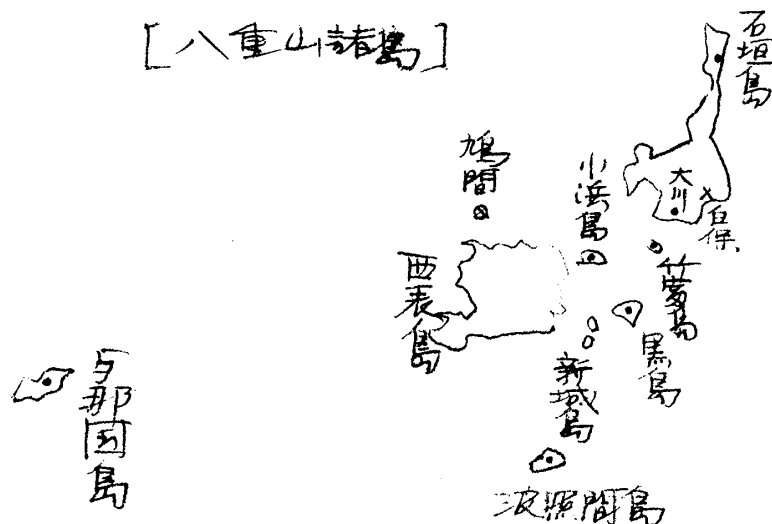 [八重山諸島]
石垣島
鳩間
小浜島
大川
白保
西表島
竹富島
黒島
新城島
与那国島
波照間島